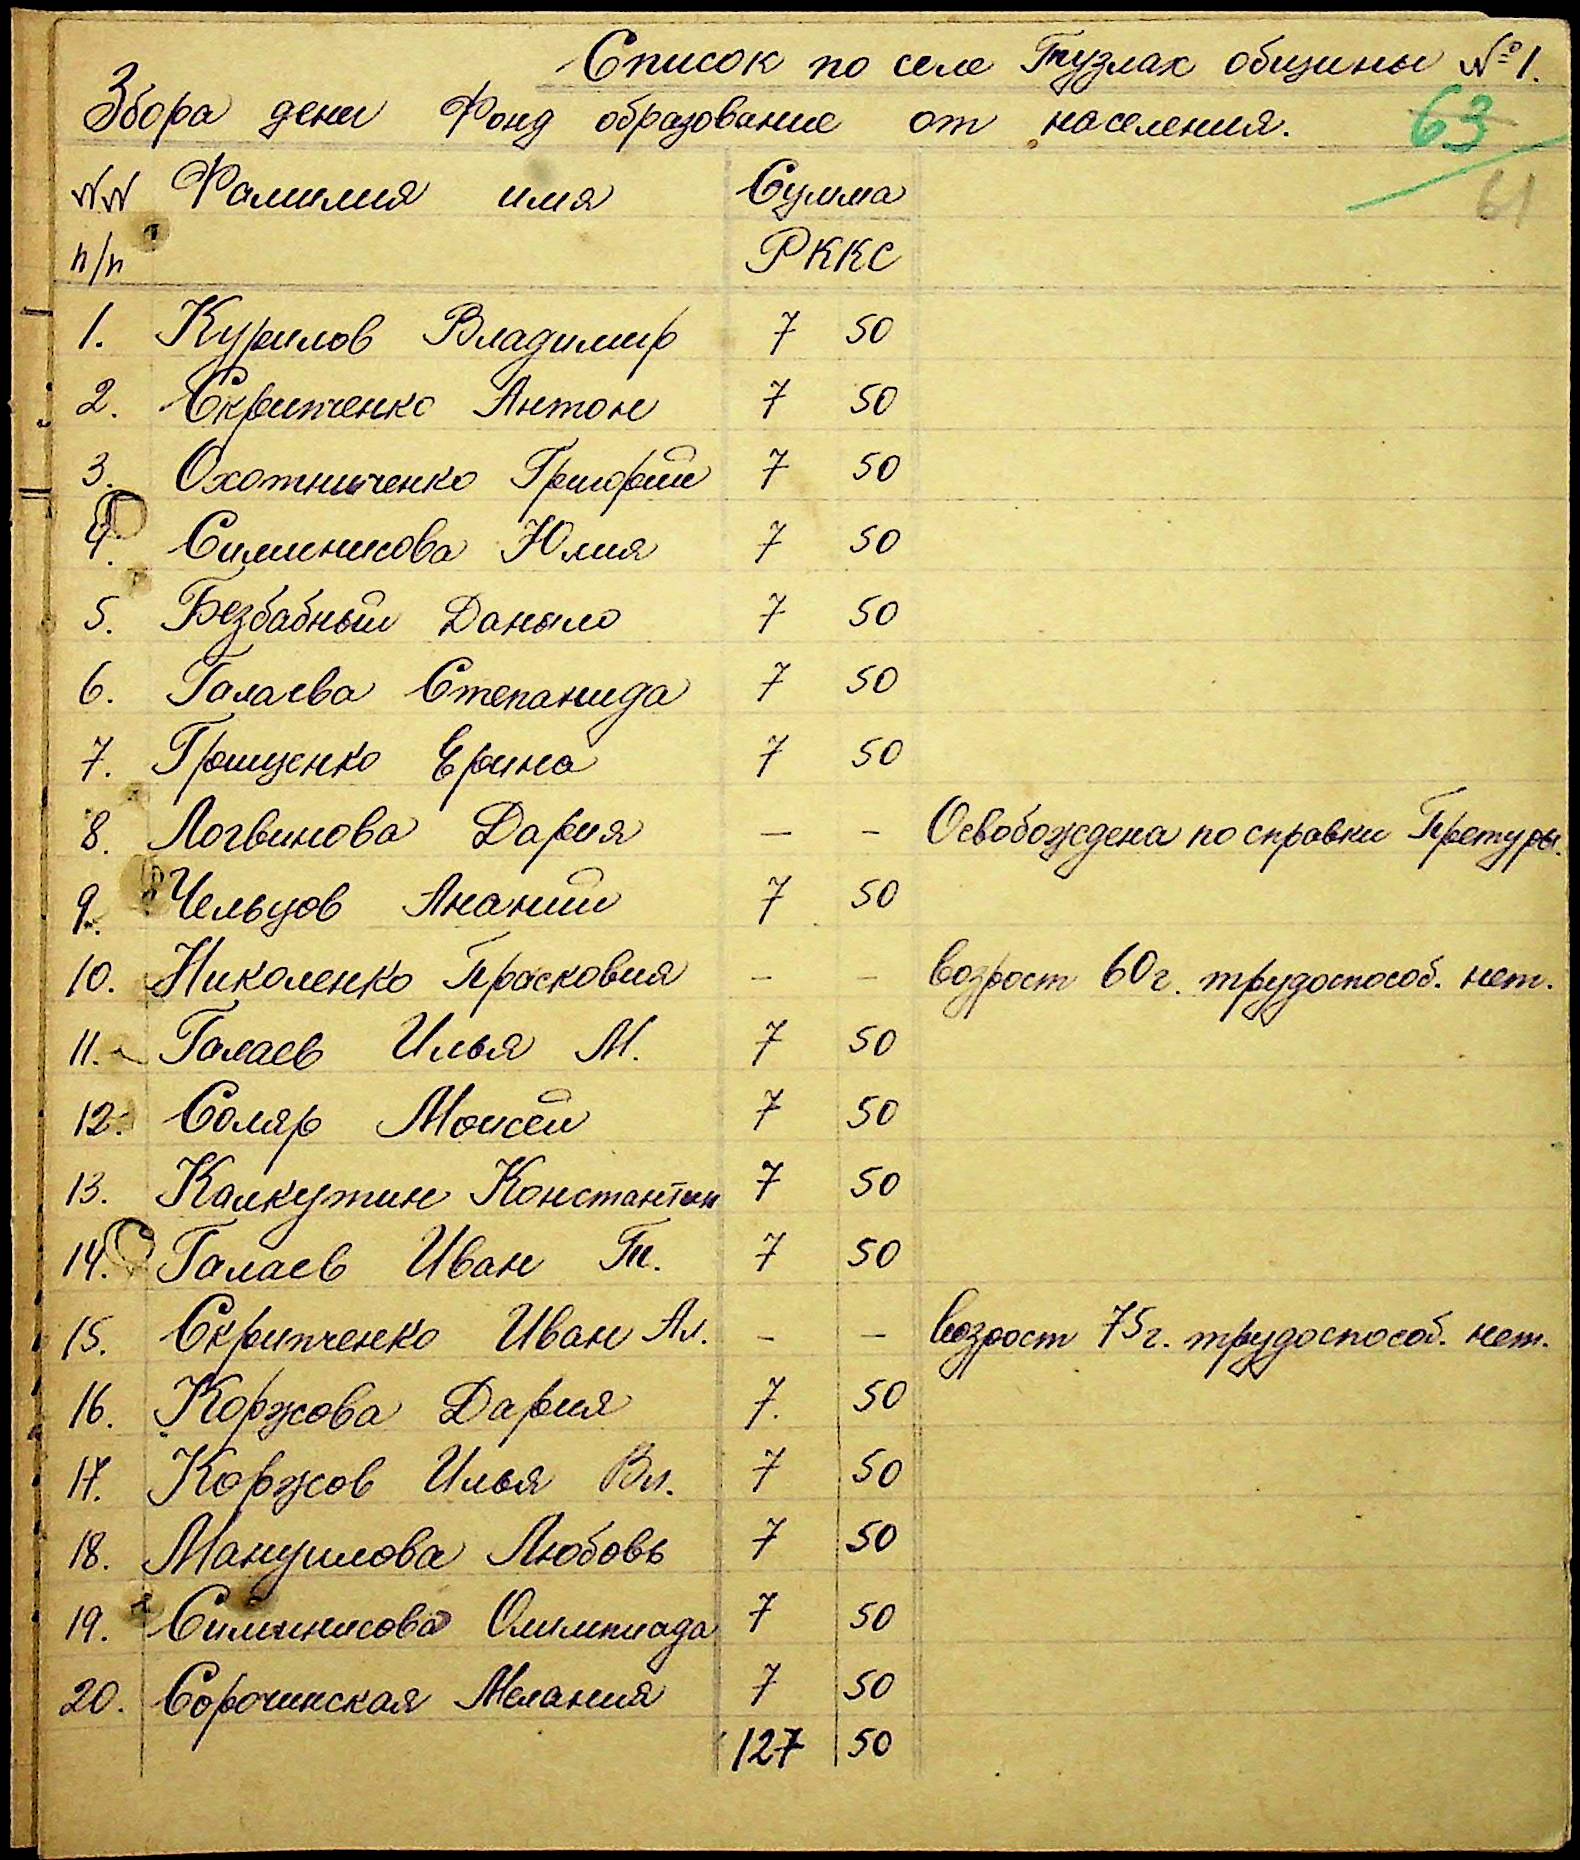 Список по селе Тузлах общины №1.
Збора дени Фонд образование от населения.
63
61
NN Фамилия имя Сумма
п/п РККС
1. Курилов Владимир 7 50
2. Скрипченко Антон 7 50
3. Охотниченко Григорий 7 50
4. Симинисова Юлия 7 50
5. Безбабный Данило 7 50
6. Галаева Степанида 7 50
7. Грищенко Ерина 7 50
8. Логвинова Дария — — Освобождена по справки Претуры.
9. Чельцов Ананий 7 50
10. Николенко Прасковия — — возрост 60 г. трудоспособ. нет.
11. Галаев Илья М. 7 50
12. Соляр Моисей 7 50
13. Калкутин Константин 7 50
14. Галаев Иван Гн. 7 50
15. Скрипченко Иван Ал. — — возрост 75 г. трудоспособ. нет.
16. Коржова Дария 7. 50
17. Коржов Илья Вл. 7 50
18. Мануилова Любовь 7 50
19. Симинисова Олимпиада 7 50
20. Сорочинская Мелания 7 50
127 50